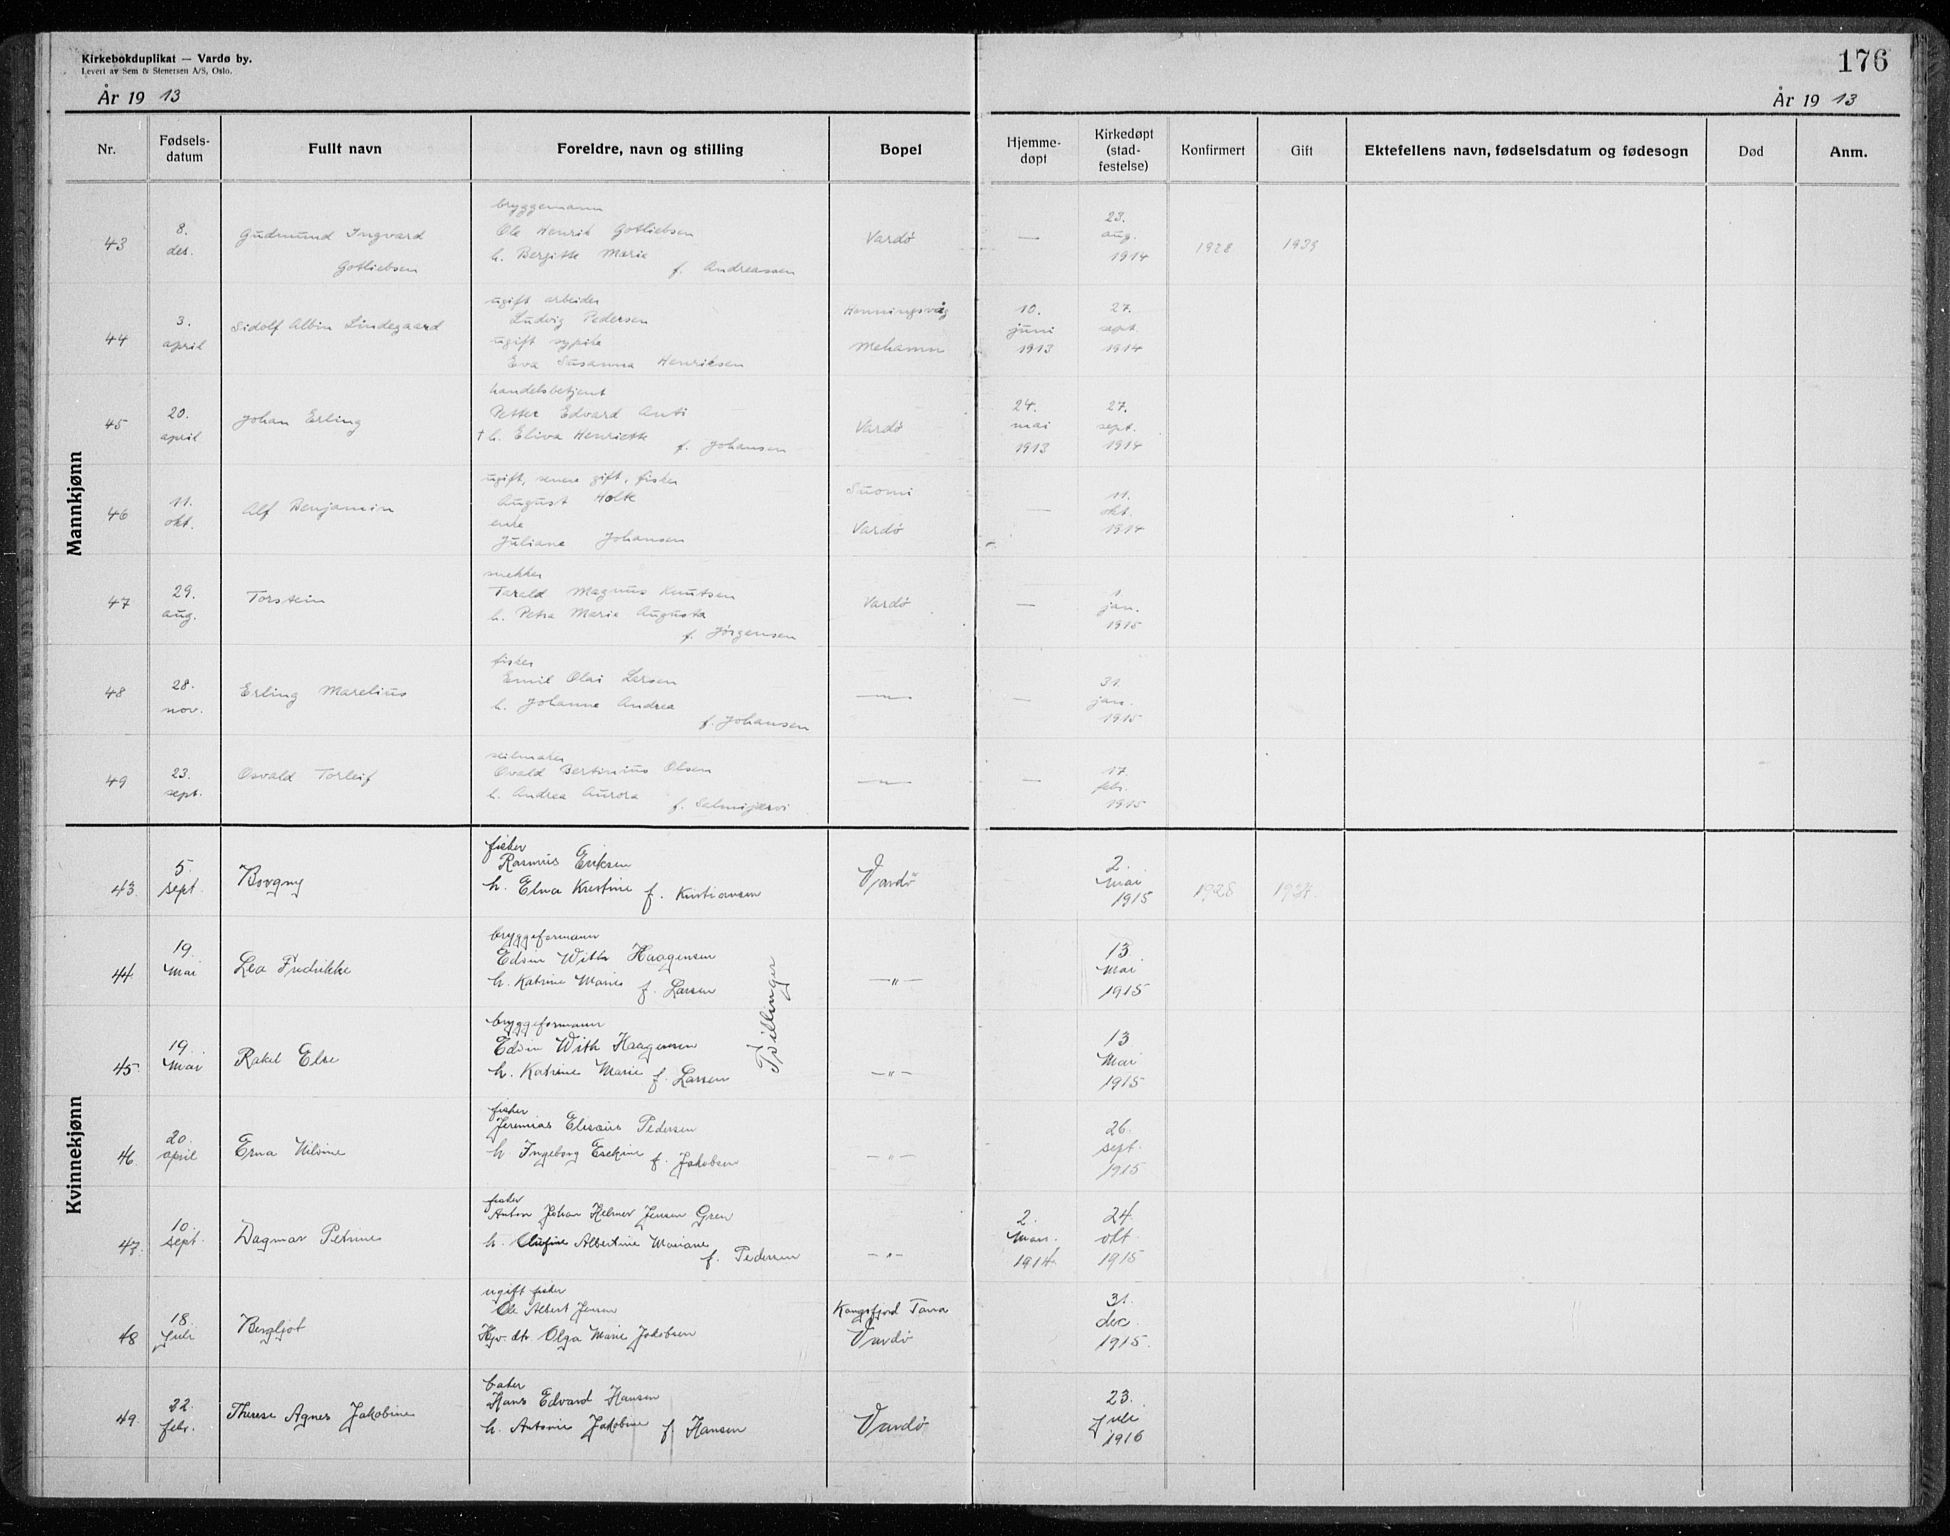 Kirkebokduplikat — Vardø by.
Levert av Sem & Stenersen A/S, Oslo.
176
År 19 13
År 19 13
Nr. Fødsels-datum Fullt navn Foreldre, navn og stilling Bopel Hjemme-døpt Kirkedøpt (stad-festelse) Konfirmert Gift Ektefellens navn, fødselsdatum og fødesogn Død Anm.
Mannkjønn
bryggemann
43 8. des. Gudmund Ingvard Gotliebsen
Ole Henrik Gotliebsen
h. Bergitte Marie f. Andreassen
Vardø — 23. aug. 1914 1928 1939
ugift arbeider
44 3. april Sidolf Albin Lindegaard
Ludvig Pedersen
ugift sypike
Eva Susanna Henriksen
Honningsvåg
Mehamn
10. juni 1913
27. sept. 1914
handelsbetjent
45 20. april Johan Erling
Petter Edvard Anti
† h. Eliva Henriette f. Johansen
Vardø
24. mai 1913
27. sept. 1914
ugift, senere gift, fisker
46 11. okt. Alf Benjamin
August Holte
enke
Juliane Johansen
Suomi
Vardø
— 11. okt. 1914
snekker
47 29. aug. Torstein
Tarald Magnus Knutsen
h. Petra Marie Augusta
f. Jørgensen
Vardø — 1. jan. 1915
fisker
48 28. nov. Erling Marelius
Emil Olai Larsen
h. Johanne Andrea
f. Johansen
—"— — 31. jan. 1915
seilmaker
49 23. sept. Osvald Torleif
Ovald Bertinius Olsen
h. Andrea Aurora f. Salmijærvi
—"— — 17. febr. 1915
Kvinnekjønn
fisker
43. 5. sept. Borgny
Rasmus Eriksen
h. Elna Kristine f. Kristiansen
Vardø 2. mai 1915 1928 1934.
bryggeformann
44. 19. mai Lea Fredrikke
Edvin With Haagensen
h. Katrine Marie f. Larsen
—"— 13. Mai 1915
Tvillinger
bryggeformann
45. 19. mai Rakel Else
Edvin With Haagensen
h. Katrine Marie f. Larsen
—"— 13 Mai 1915
fisker
46. 20. april Erna Nilsine
Jeremias Elisæus Pedersen
h Ingeborg Esekine f. Jakobsen
—"— 26. sept. 1915
fisker
47. 10. sept. Dagmar Petrine
Anton Johan Helmer Jensen Gren
h. Albertine Mariane
f. Pedersen
—"— 2. Mars. 1914. 24. okt 1915
ugift fisker
48 18. juli Bergljot
Ole Albert Jensen
Hjv. dtr Olga Marie Jakobsen
Kongsfjord Tana
Vardø
31. dec. 1915.
baker
49. 22. febr. Therese Agnes Jakobine
Hans Edvard Hansen
h. Antonie Jakobine f Hansen
Vardø 23. juli 1916